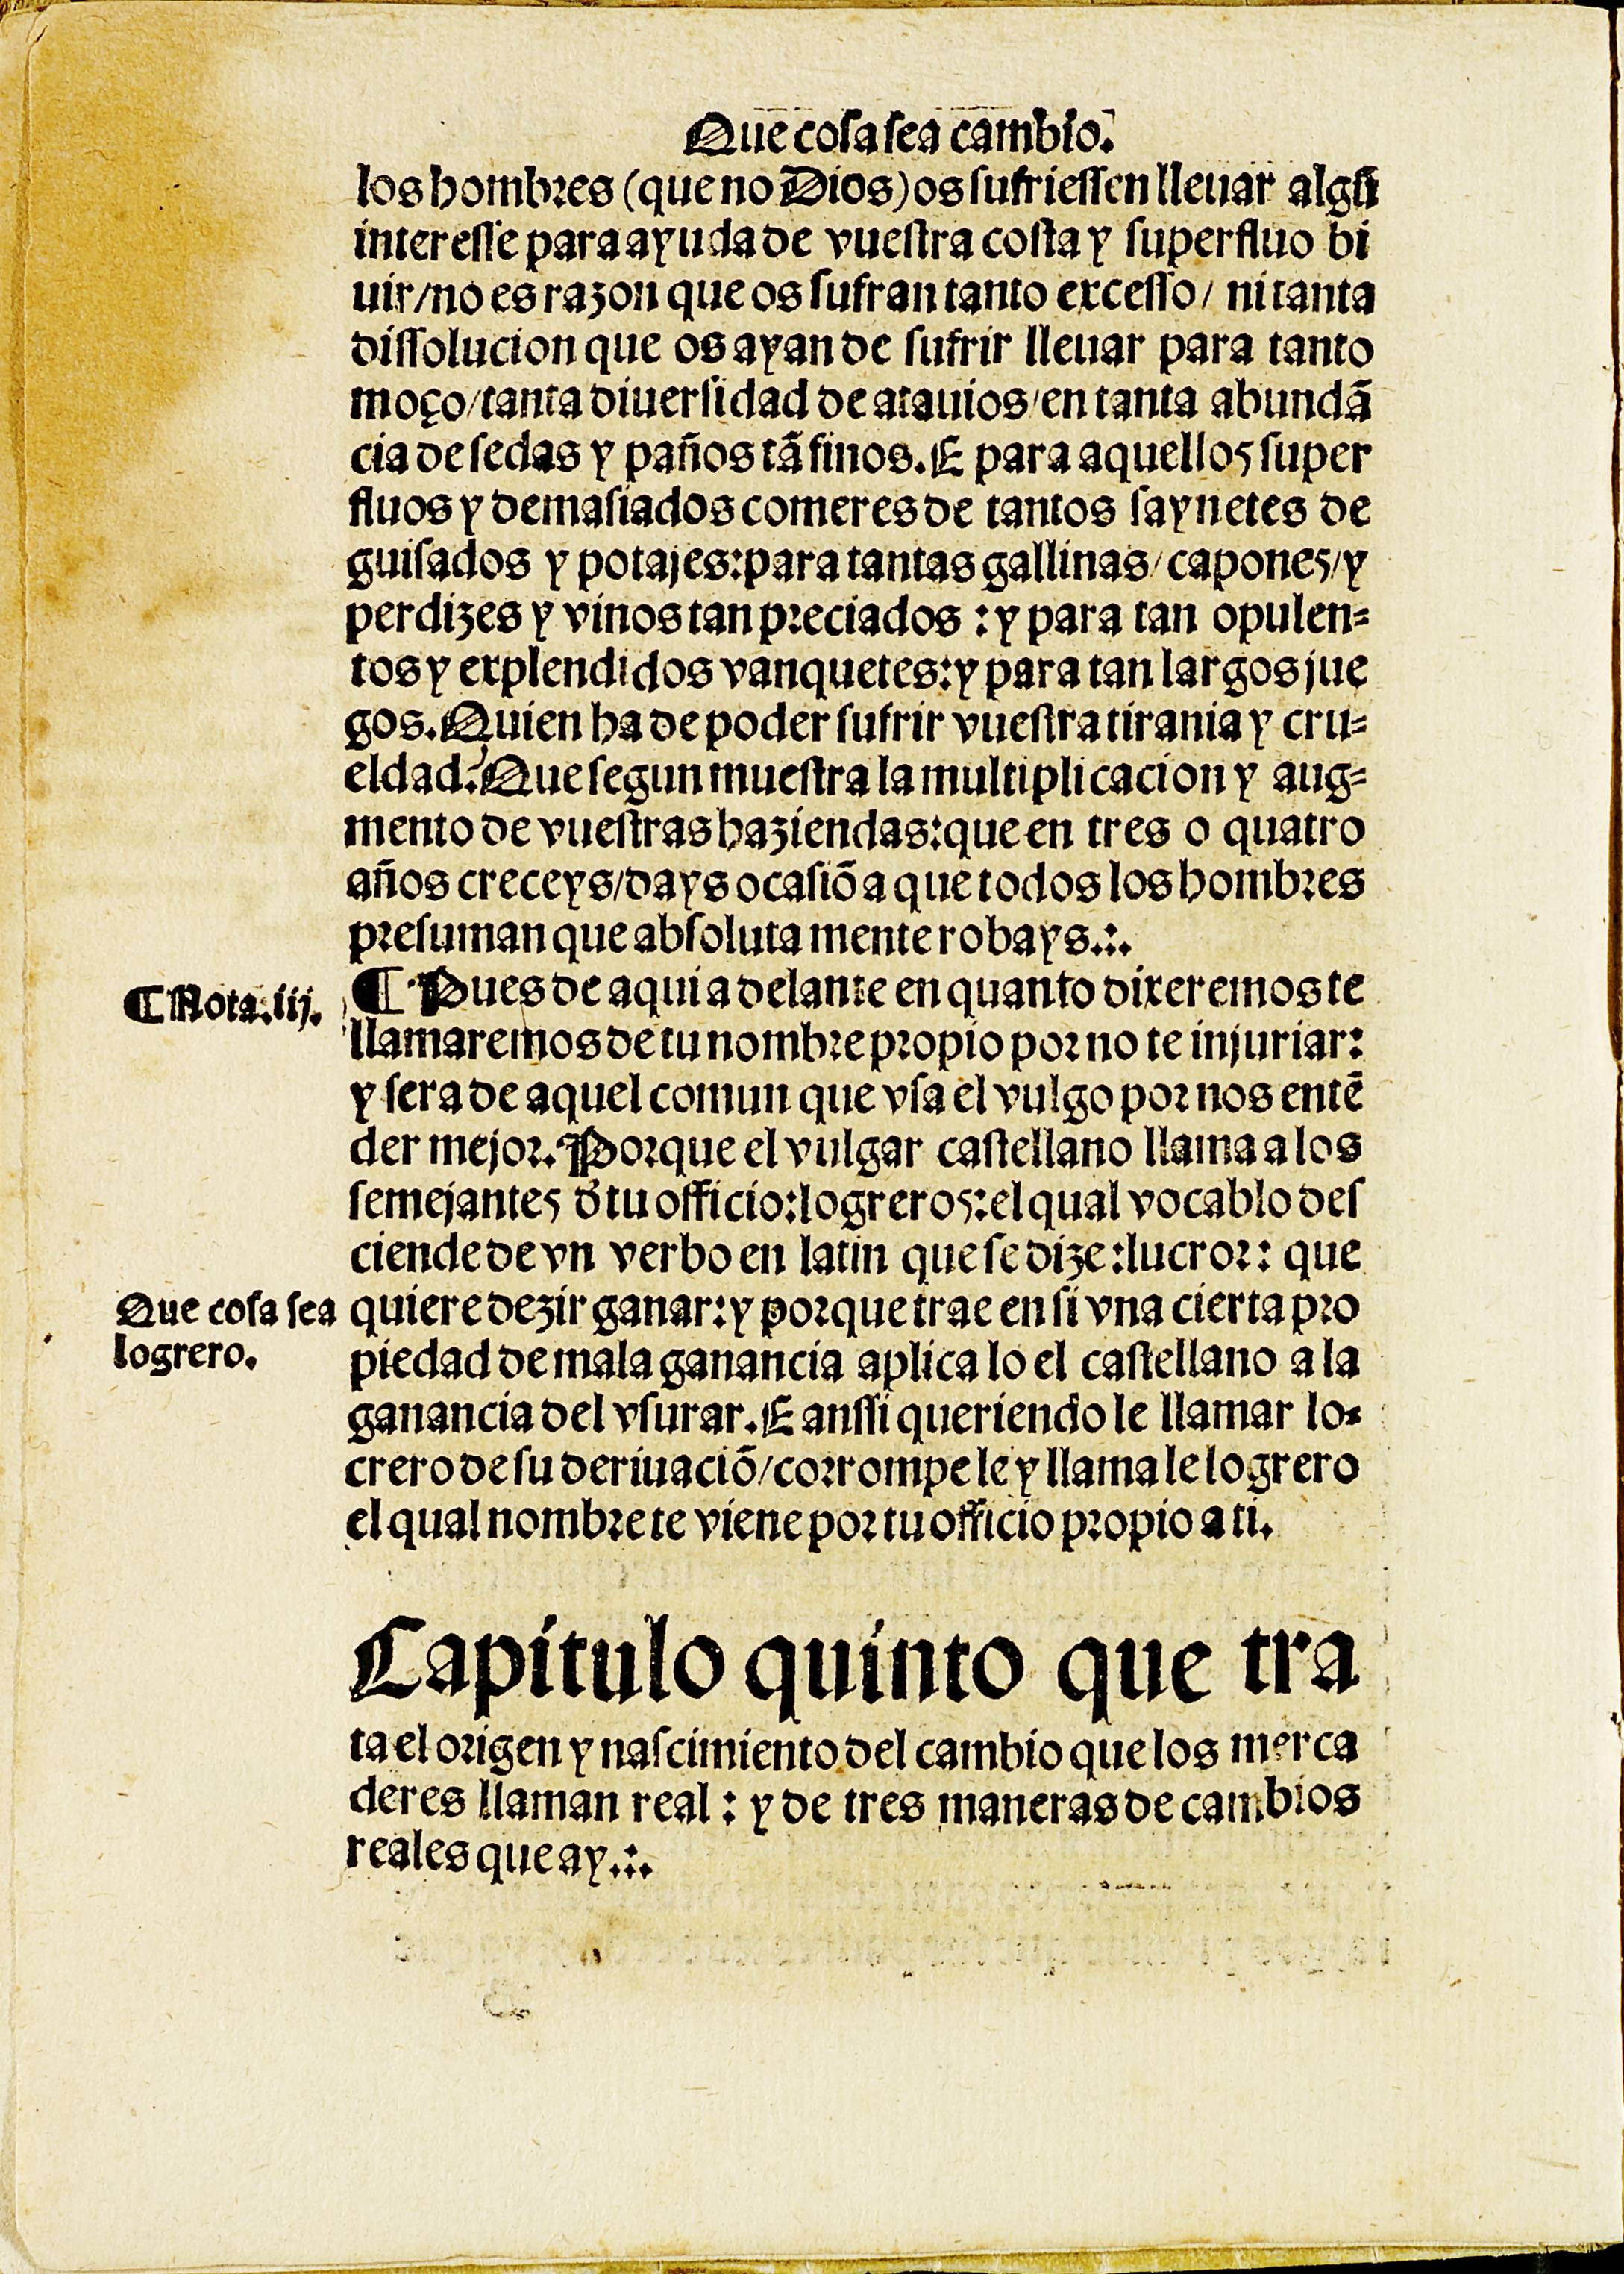 Que cosa sea cambio.
los hombres (que no Dios) os sufriessen lleuar algũ
interesse para ayuda de vuestra costa y superfluo bi
uir/no es razon que os sufran tanto excesso/ ni tanta
dissolucion que os ayan de sufrir lleuar para tanto
moço/tanta diuersidad de atauios/en tanta abundã
cia de sedas y paños tã finos. E para aquellos super
fluos y demasiados comeres de tantos saynetes de
guisados y potajes:para tantas gallinas/capones/y
perdizes y vinos tan preciados : y para tan opulen=
tos y explendidos vanquetes:y para tan largos jue
gos. Quien ha de poder sufrir vuestra tirania y cru=
eldad? Que segun muestra la multiplicacion y aug=
mento de vuestras haziendas:que en tres o quatro
años creceys/days ocasiõ a que todos los hombres
presuman que absoluta mente robays.:.
¶ Nota.iij.
¶ Pues de aqui adelante en quanto dixeremos te
llamaremos de tu nombre propio por no te injuriar:
y sera de aquel comun que vsa el vulgo por nos entẽ
der mejor. Porque el vulgar castellano llama a los
semejantes d̃ tu officio:logreros:el qual vocablo des
ciende de vn verbo en latin que se dize:lucror: que
Que cosa sea
logrero.
quiere dezir ganar:y porque trae en si vna cierta pro
piedad de mala ganancia aplica lo el castellano a la
ganancia del vsurar. E anssi queriendo le llamar lo=
crero de su deriuaciõ/corrompe le y llama le logrero
el qual nombre te viene por tu officio propio a ti.
Capitulo quinto que tra
ta el origen y nascimiento del cambio que los merca
deres llaman real : y de tres maneras de cambios
reales que ay.:.